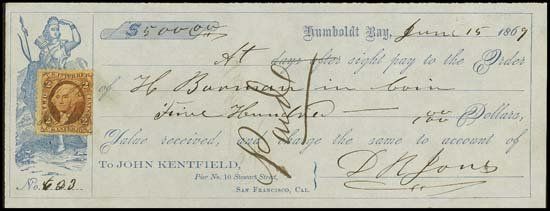 $500 00 Humboldt Bay, June 15 1869
At days after sight pay to the Order
of H Borman in coin
Five Hundred — 00/100 Dollars,
Value received, and charge the same to account of
To JOHN KENTFIELD, D R Jones
Pier No. 10 Stewart Street,
SAN FRANCISCO, CAL.
No. 623
Paid